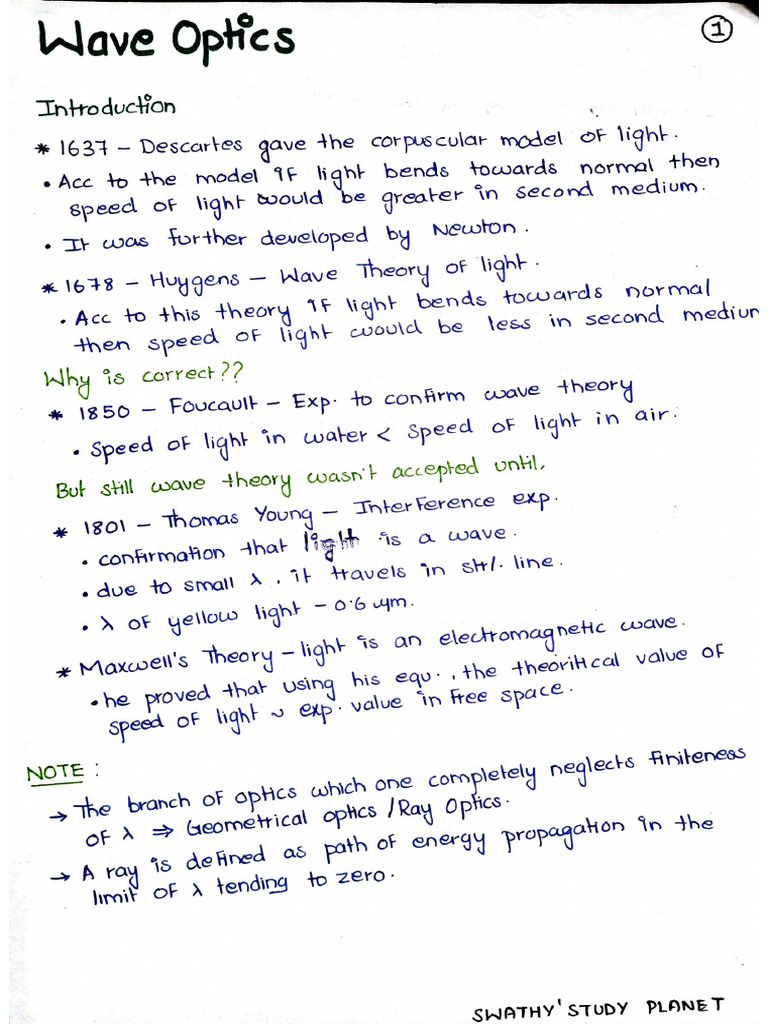 Wave Optics
1
Introduction
* 1637 – Descartes gave the corpuscular model of light.
• Acc to the model if light bends towards normal then
speed of light would be greater in second medium.
• It was further developed by Newton.
* 1678 – Huygens – Wave Theory of light.
• Acc to this theory if light bends towards normal
then speed of light would be less in second medium
Why is correct??
* 1850 – Foucault – Exp. to confirm wave theory
• Speed of light in water < Speed of light in air.
But still wave theory wasn't accepted until,
* 1801 – Thomas Young – Interference exp.
• confirmation that light is a wave.
• due to small λ, it travels in str/. line.
• λ of yellow light – 0.6 μm.
* Maxwell's Theory – light is an electromagnetic wave.
• he proved that using his equ., the theoritical value of
speed of light ~ exp. value in free space.
NOTE:
→ The branch of optics which one completely neglects finiteness
of λ ⇒ Geometrical optics / Ray Optics.
→ A ray is defined as path of energy propagation in the
limit of λ tending to zero.
SWATHY'STUDY PLANET